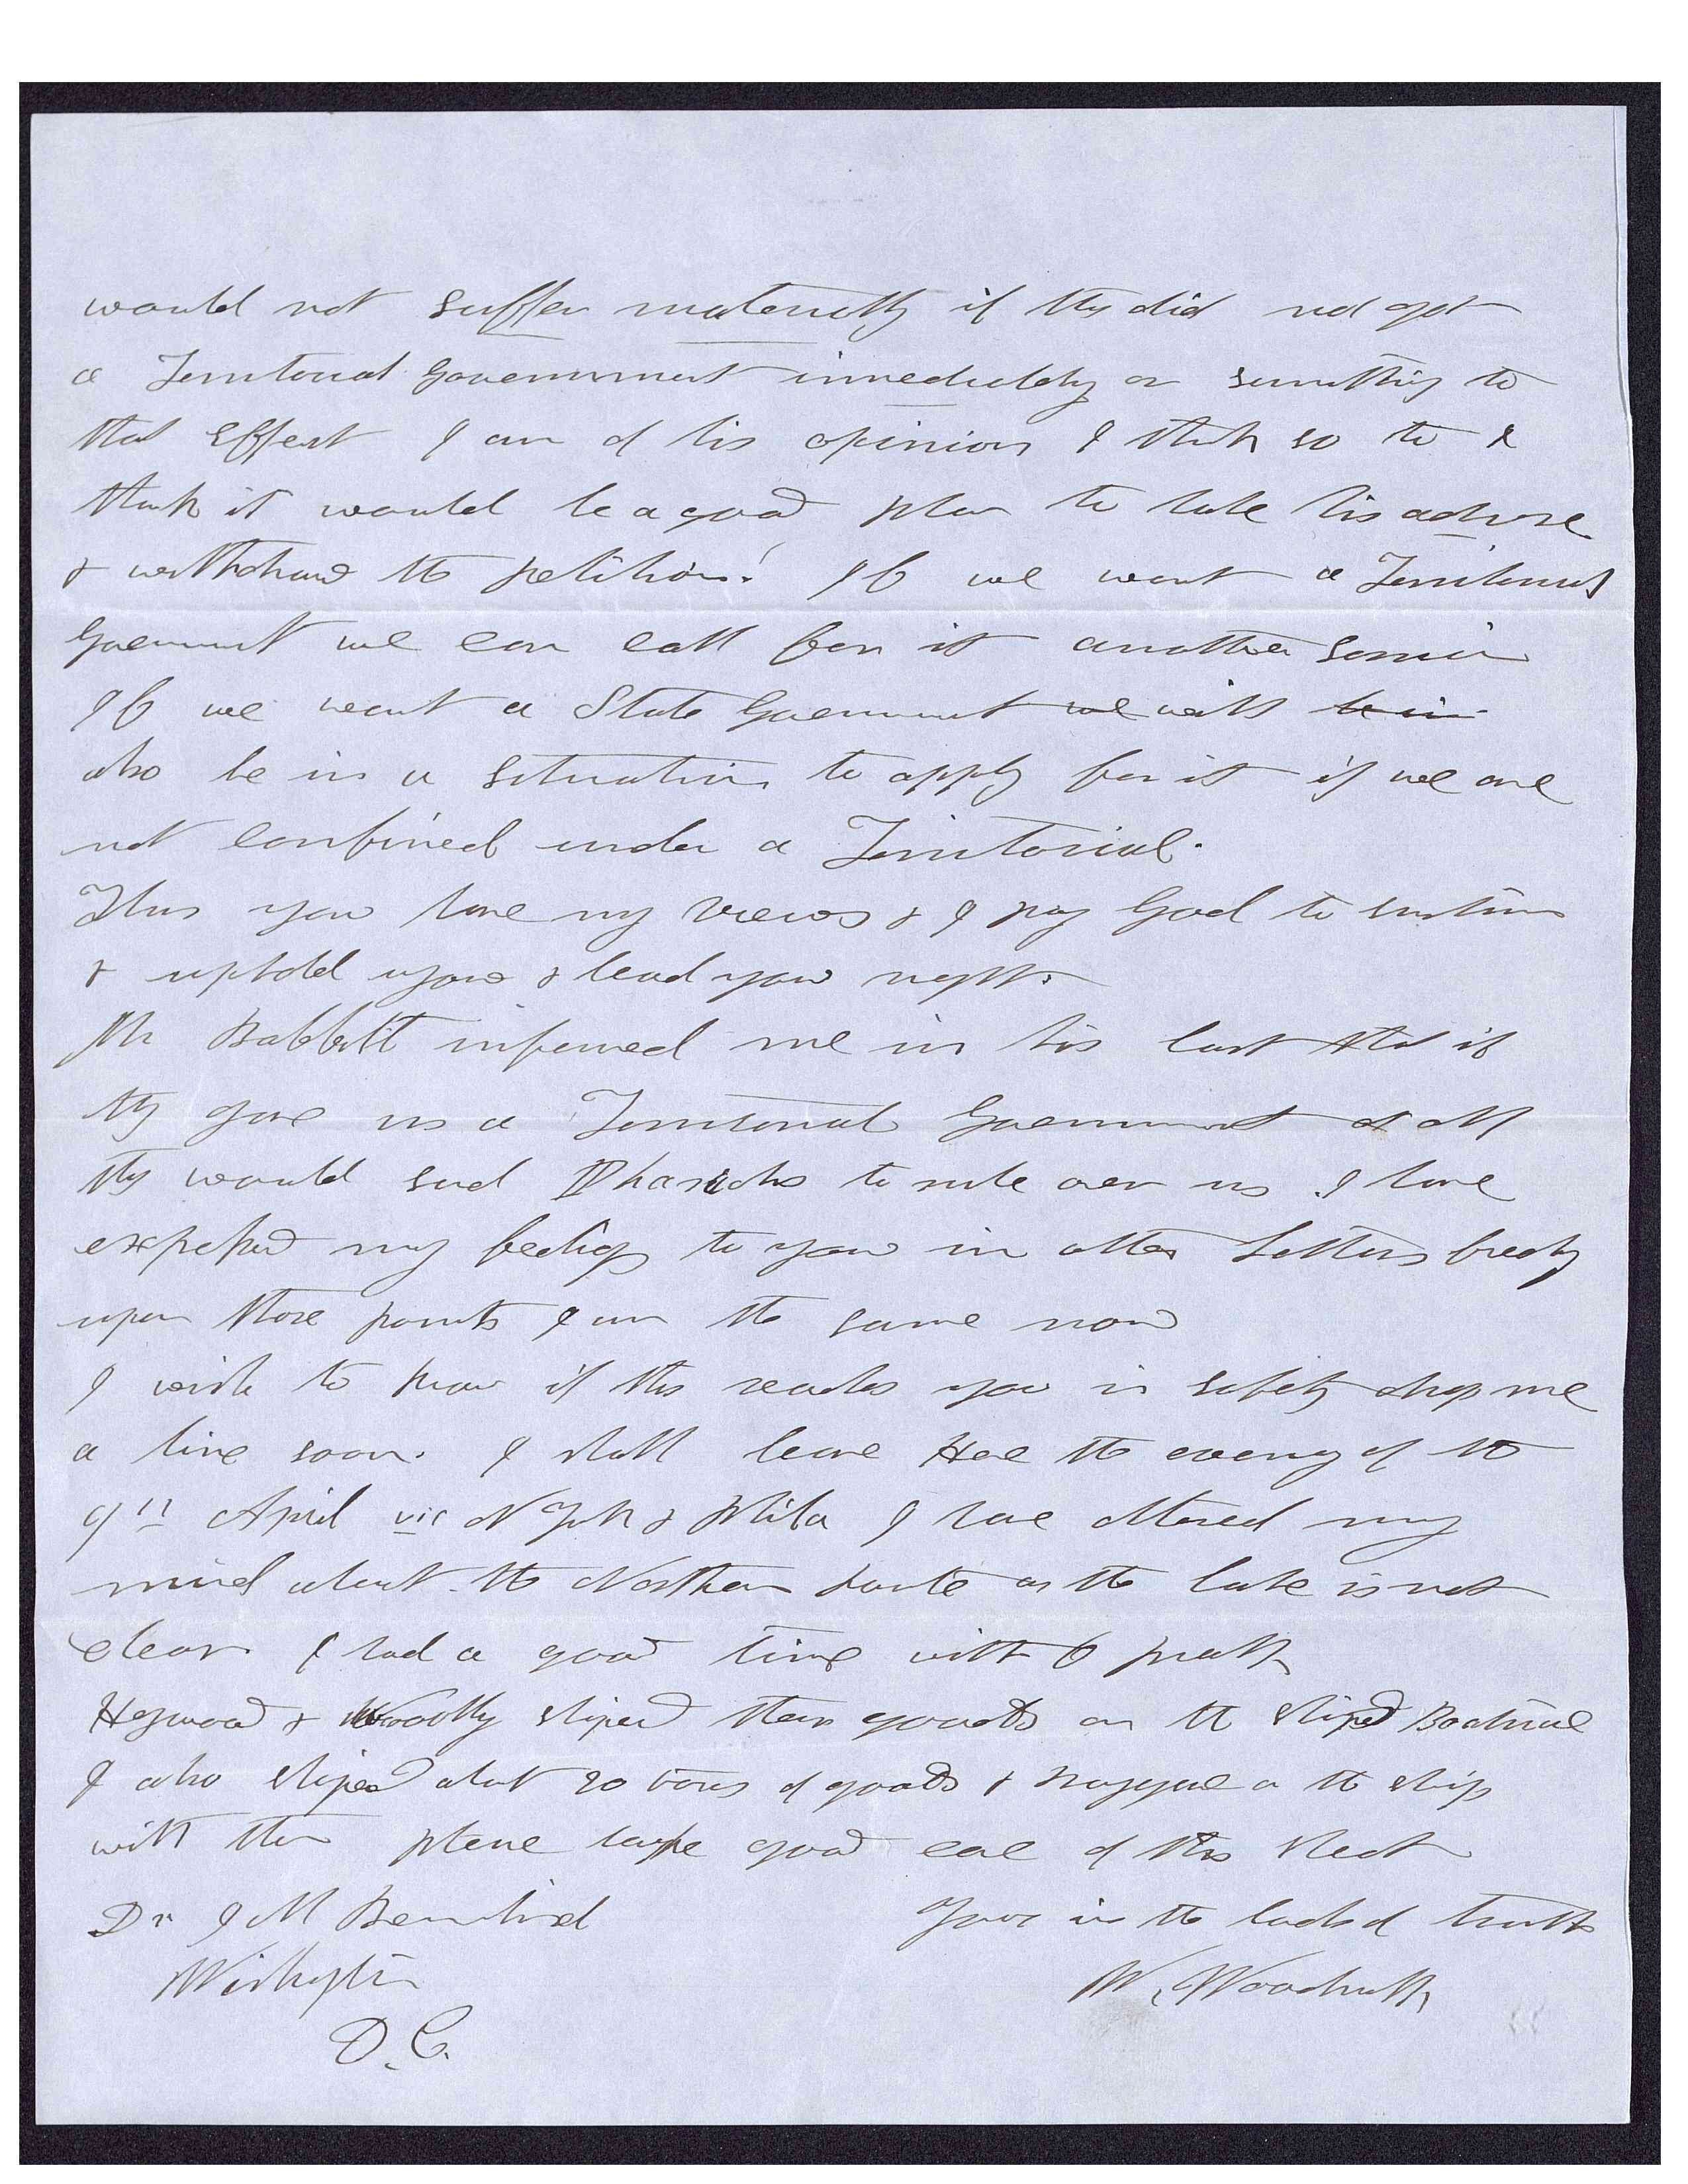 would not suffer materially if they did not get
a Territorial Government immediately or something to
that Effect I am of his opinion I think so to &
think it would be a good plan to take his advise
& withdraw the petition! If we want a Territorial
Goverment we can call for it another Session
If we want a State Goverment we will be in
also be in a situation to apply for it if we are
not confined under a Territorial.
Thus you have my views & I pray God to sustain
& uphold you & lead you right.
Mr Babbitt informed me in his last that if
they gave us a Territorial Goverment at all
they would send Pharaohs to rule over us I have
expressed my feelings to you in other Letters freely
upon those points I am the same now
I wish to know if this reaches you in safety drop me
a line soon. I shall leave Here the evening of the
9th April via N York & Phila I have altered my
mind about the Northern route as the lake is not
clear. I had a good time with O pratt
Haywood & Woolly shiped their goods on the ship
I also shiped about 20 tons of goods & baggage on the ship
with them please take good care of this sheet
Dr J M Bernhisel
Yours in the of truth
Washington
W. Woodruff
D.C.